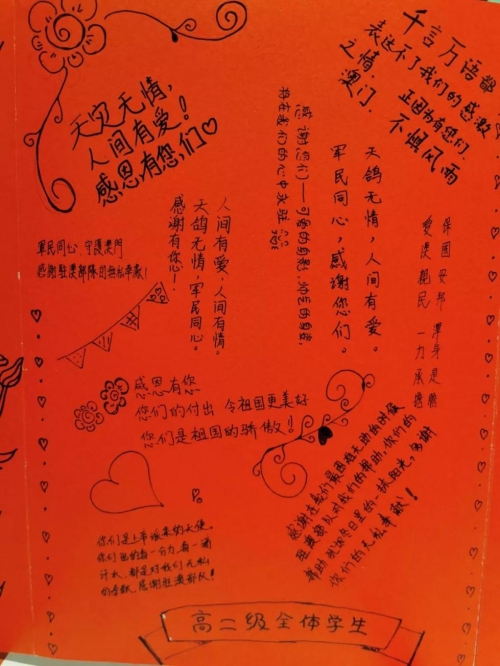 天灾无情,
人间有爱!
感恩有您,们♡
千言万语都
表达不了我们的感激
之情,正因为有您们,
澳门,不惧风雨
感谢您们——可爱的身影,帅气的身姿,
将在我们的心中永驻
天鸽无情,人间有爱。
军民同心,感谢您们。
人间有爱,人间有情。
天鸽无情,军民同心。
感谢有您!
保國安邦 渾身是膽
愛澳親民 一力承擔
軍民同心、守護澳門
感謝駐澳部隊的無私奉獻!
感恩有您
您们的付出 令祖国更美好
您们是祖国的骄傲!
感谢在我们最困难无助的时候
驻澳部队对我们的帮助,你们的
帮助就像冬日里的一抹阳光,感谢
你们的无私奉献!
你们是上帝派来的天使,
你们出的每一分力,每一滴
汗水,都是对我们无私
的奉献,感谢驻澳部队!
高二级全体学生